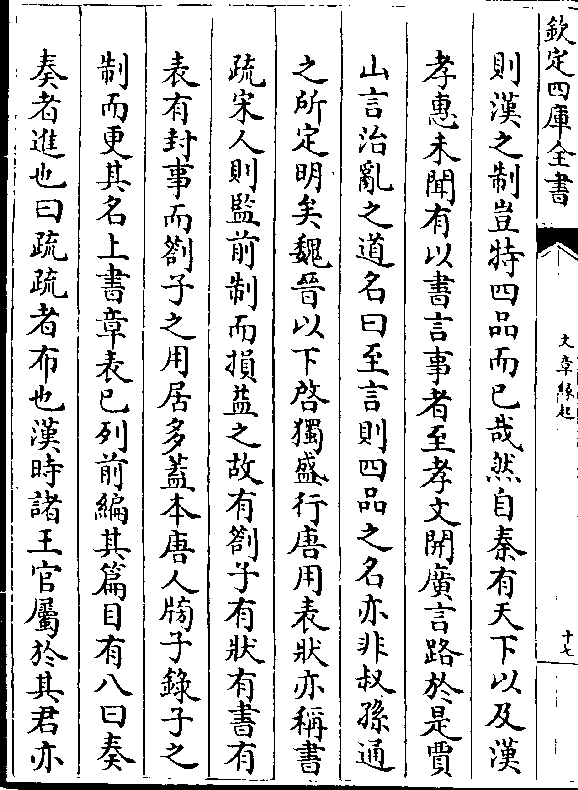 欽定四庫全書
文章緣起
十七
則漢之制豈特四品而已哉然自秦有天下以及漢
孝惠未聞有以書言事者至孝文開廣言路於是賈
山言治亂之道名曰至言則四品之名亦非叔孫通
之所定明矣魏晉以下啓獨盛行唐用表狀亦稱書
疏宋人則監前制而損益之故有劄子有狀有書有
表有封事而劄子之用居多蓋本唐人牓子錄子之
制而更其名上書章表已列前編其篇目有八曰奏
奏者進也曰疏疏者布也漢時諸王官屬於其君亦